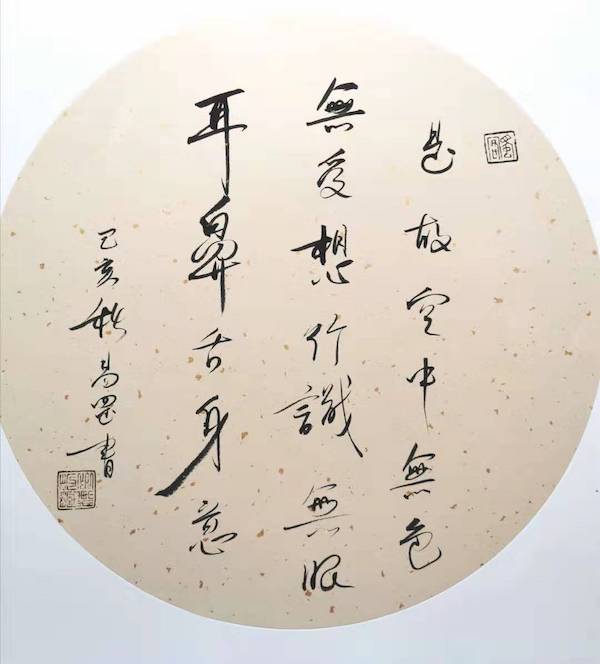 是故空中無色
無受想行識無眼
耳鼻舌身意
己亥秋易罡書